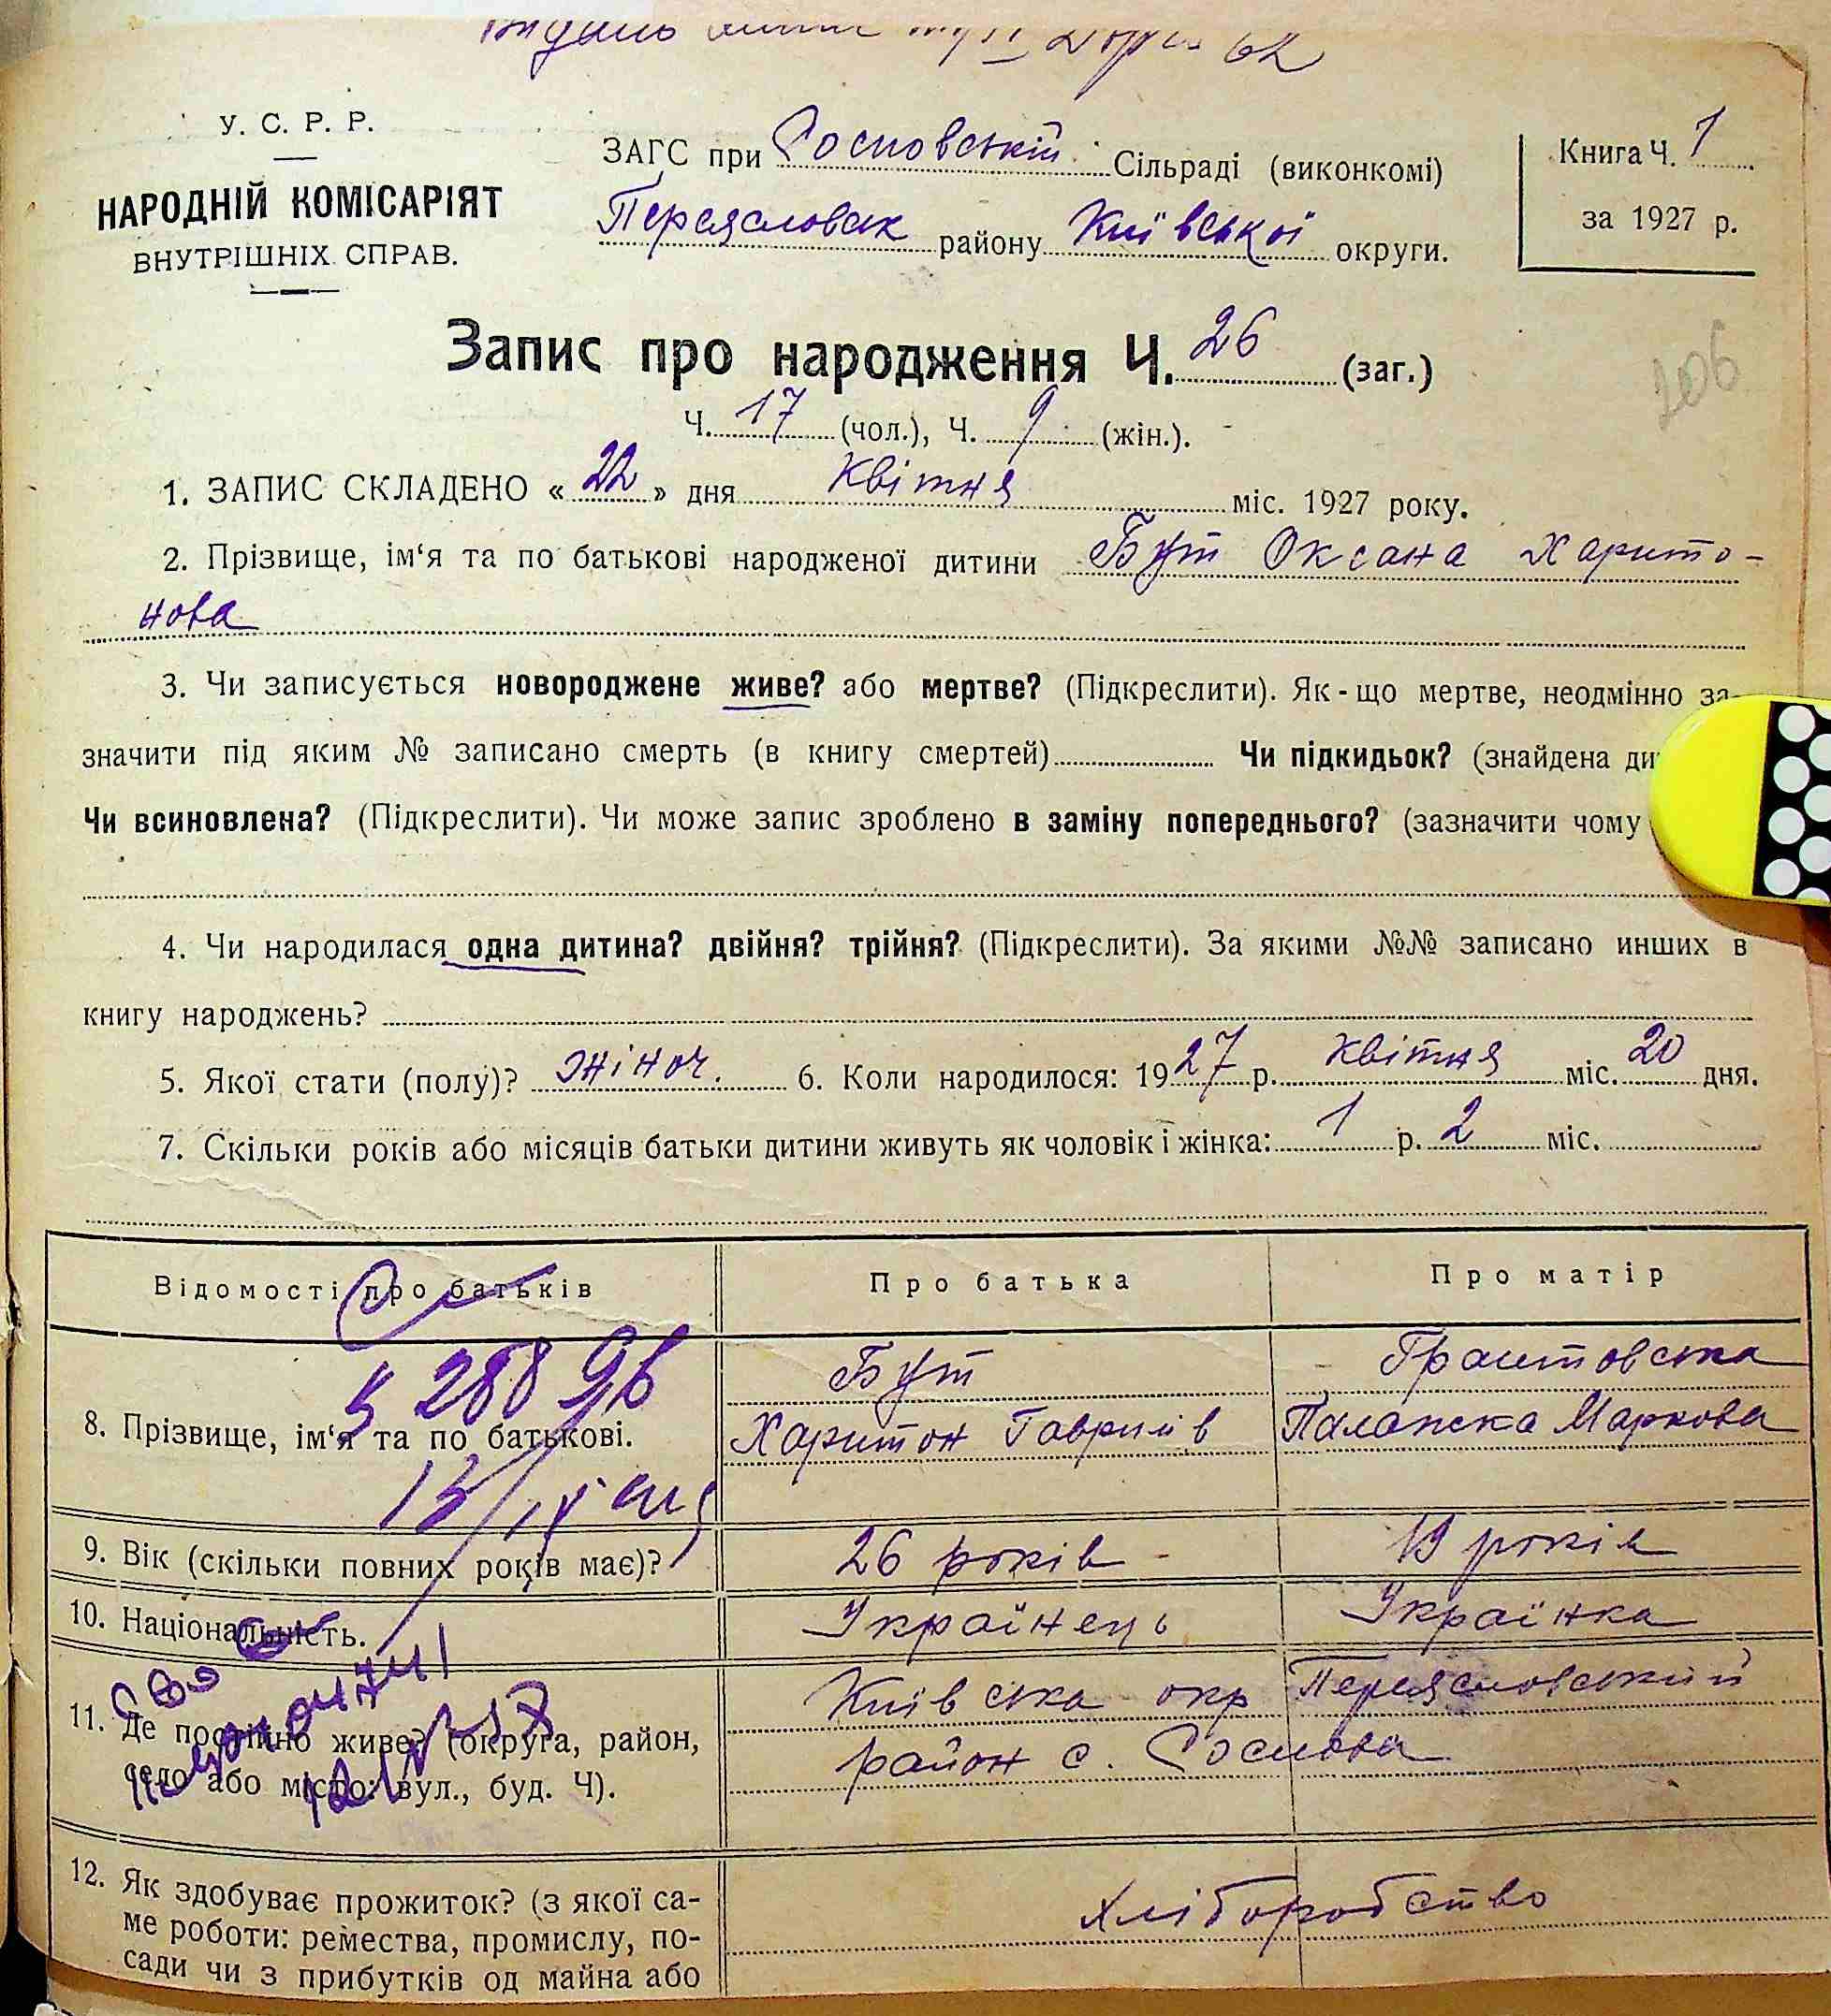 У. С. Р. Р.
НАРОДНІЙ КОМІСАРІЯТ
ВНУТРІШНІХ СПРАВ.
ЗАГС при Сосновській Сільраді (виконкомі)
Переясловск району Київської округи.
Книга Ч. 1
за 1927 р.
Запис про народження Ч. 26 (заг.)
206
Ч. 17 (чол.), Ч. 9 (жін.).
1. ЗАПИС СКЛАДЕНО «22» дня Квітня міс. 1927 року.
2. Прізвище, ім‘я та по батькові народженої дитини Бут Оксана Харито-
нова
3. Чи записується новороджене живе? або мертве? (Підкреслити). Як-що мертве, неодмінно за-
значити під яким № записано смерть (в книгу смертей) Чи підкидьок? (знайдена
Чи всиновлена? (Підкреслити). Чи може запис зроблено в заміну попереднього? (зазначити чому
4. Чи народилася одна дитина? двійня? трійня? (Підкреслити). За якими №№ записано инших в
книгу народжень?
5. Якої стати (полу)? жіноч. 6. Коли народилося: 1927 р. квітня міс. 20 дня.
7. Скільки років або місяців батьки дитини живуть як чоловік і жінка: 1 р. 2 міс.
Відомості про батьків Про батька Про матір
8. Прізвище, ім‘я та по батькові.
Бут
Харитон Гаврилів
Палажка Маркова
9. Вік (скільки повних років має)? 26 років 19 років
10. Національність. Українець Українка
11. Де постійно живе? (округа, район,
село або місто: вул., буд. Ч).
Київська окр Переясловський
район с. Соснова
12. Як здобуває прожиток? (з якої са-
ме роботи: ремества, промислу, по-
сади чи з прибутків од майна або
хліборобство